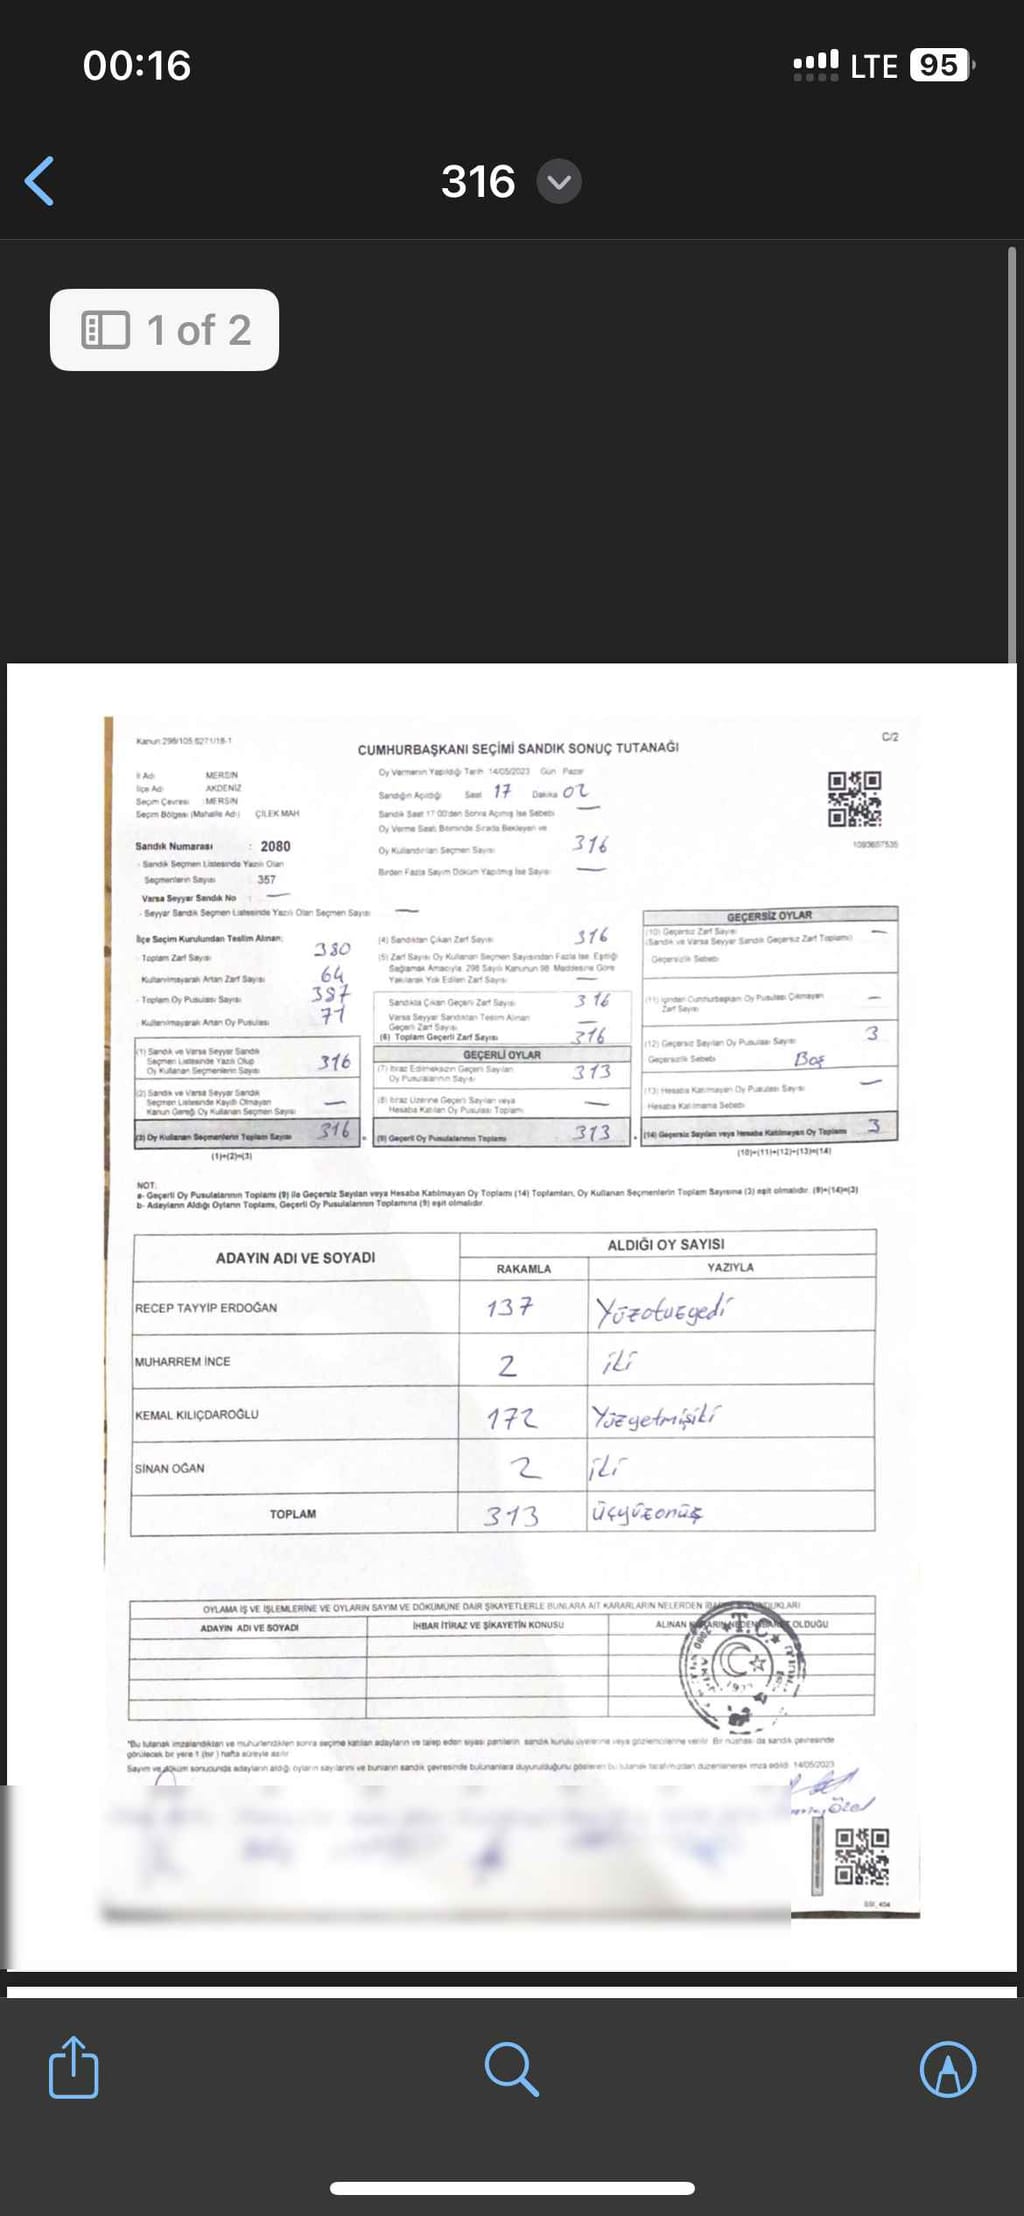 00:16
LTE 95
316
1 of 2
Kanun:298/105 6271/18-1
C/2
CUMHURBAŞKANI SEÇİMİ SANDIK SONUÇ TUTANAĞI
İl Adı MERSİN
İlçe Adı AKDENİZ
Seçim Çevresi MERSİN
Seçim Bölgesi (Mahalle Adı) ÇİLEK MAH
Oy Vermenin Yapıldığı Tarih 14/05/2023 Gün Pazar
Sandığın Açıldığı Saat 17 Dakika 02
Sandık Saat 17:00'den Sonra Açılmış İse Sebebi —
Oy Verme Saati Bitiminde Sırada Bekleyen ve
Oy Kullandırılan Seçmen Sayısı 316
Birden Fazla Sayım Döküm Yapılmış İse Sayısı —
Sandık Numarası : 2080
- Sandık Seçmen Listesinde Yazılı Olan
Seçmenlerin Sayısı 357
Varsa Seyyar Sandık No : —
- Seyyar Sandık Seçmen Listesinde Yazılı Olan Seçmen Sayısı —
İlçe Seçim Kurulundan Teslim Alınan;
- Toplam Zarf Sayısı 380
Kullanılmayarak Artan Zarf Sayısı 64
- Toplam Oy Pusulası Sayısı 387
Kullanılmayarak Artan Oy Pusulası 71
(1) Sandık ve Varsa Seyyar Sandık
Seçmen Listesinde Yazılı Olup
Oy Kullanan Seçmenlerin Sayısı 316
(2) Sandık ve Varsa Seyyar Sandık
Seçmen Listesinde Kayıtlı Olmayan
Kanun Gereği Oy Kullanan Seçmen Sayısı —
(3) Oy Kullanan Seçmenlerin Toplam Sayısı 316
(1)+(2)=(3)
(4) Sandıktan Çıkan Zarf Sayısı 316
(5) Zarf Sayısı Oy Kullanan Seçmen Sayısından Fazla İse Eşitliği
Sağlamak Amacıyla 298 Sayılı Kanunun 98. Maddesine Göre
Yakılarak Yok Edilen Zarf Sayısı —
Sandıkta Çıkan Geçerli Zarf Sayısı 316
Varsa Seyyar Sandıktan Teslim Alınan
Geçerli Zarf Sayısı —
(6) Toplam Geçerli Zarf Sayısı 316
GEÇERLİ OYLAR
(7) İtiraz Edilmeksizin Geçerli Sayılan
Oy Pusulalarının Sayısı 313
(8) İtiraz Üzerine Geçerli Sayılan veya
Hesaba Katılan Oy Pusulası Toplamı —
(9) Geçerli Oy Pusulalarının Toplamı 313
GEÇERSİZ OYLAR
(10) Geçersiz Zarf Sayısı
(Sandık ve Varsa Seyyar Sandık Geçersiz Zarf Toplamı) —
Geçersizlik Sebebi
(11) İçinden Cumhurbaşkanı Oy Pusulası Çıkmayan
Zarf Sayısı —
(12) Geçersiz Sayılan Oy Pusulası Sayısı 3
Geçersizlik Sebebi Boş
(13) Hesaba Katılmayan Oy Pusulası Sayısı —
Hesaba Katılmama Sebebi
(14) Geçersiz Sayılan veya Hesaba Katılmayan Oy Toplamı 3
(10)+(11)+(12)+(13)=(14)
NOT:
a- Geçerli Oy Pusulalarının Toplamı (9) ile Geçersiz Sayılan veya Hesaba Katılmayan Oy Toplamı (14) Toplamları, Oy Kullanan Seçmenlerin Toplam Sayısına (3) eşit olmalıdır. (9)+(14)=(3)
b- Adayların Aldığı Oyların Toplamı, Geçerli Oy Pusulalarının Toplamına (9) eşit olmalıdır
ADAYIN ADI VE SOYADI
ALDIĞI OY SAYISI
RAKAMLA YAZIYLA
RECEP TAYYİP ERDOĞAN 137 Yüzotuzyedi
MUHARREM İNCE 2 iki
KEMAL KILIÇDAROĞLU 172 Yüzyetmişiki
SİNAN OĞAN 2 iki
TOPLAM 313 üçyüzonüç
OYLAMA İŞ VE İŞLEMLERİNE VE OYLARIN SAYIM VE DÖKÜMÜNE DAİR ŞİKAYETLERLE BUNLARA AİT KARARLARIN NELERDEN
ADAYIN ADI VE SOYADI İHBAR İTİRAZ VE ŞİKAYETİN KONUSU ALINAN OLDUĞU
T.C.
*Bu tutanak imzalandıktan ve mühürlendikten sonra seçime katılan adayların ve talep eden siyasi partilerin sandık kurulu üyelerine veya gözlemcilerine verilir. Bir nüshası da sandık çevresinde
görülecek bir yere 1 (bir) hafta süreyle asılır
Sayım ve döküm sonucunda adayların aldığı oyların sayılarını ve bunların sandık çevresinde bulunanlara duyurulduğunu gösteren bu tutanak tarafımızdan düzenlenerek imza edildi. 14/05/2023
Özel